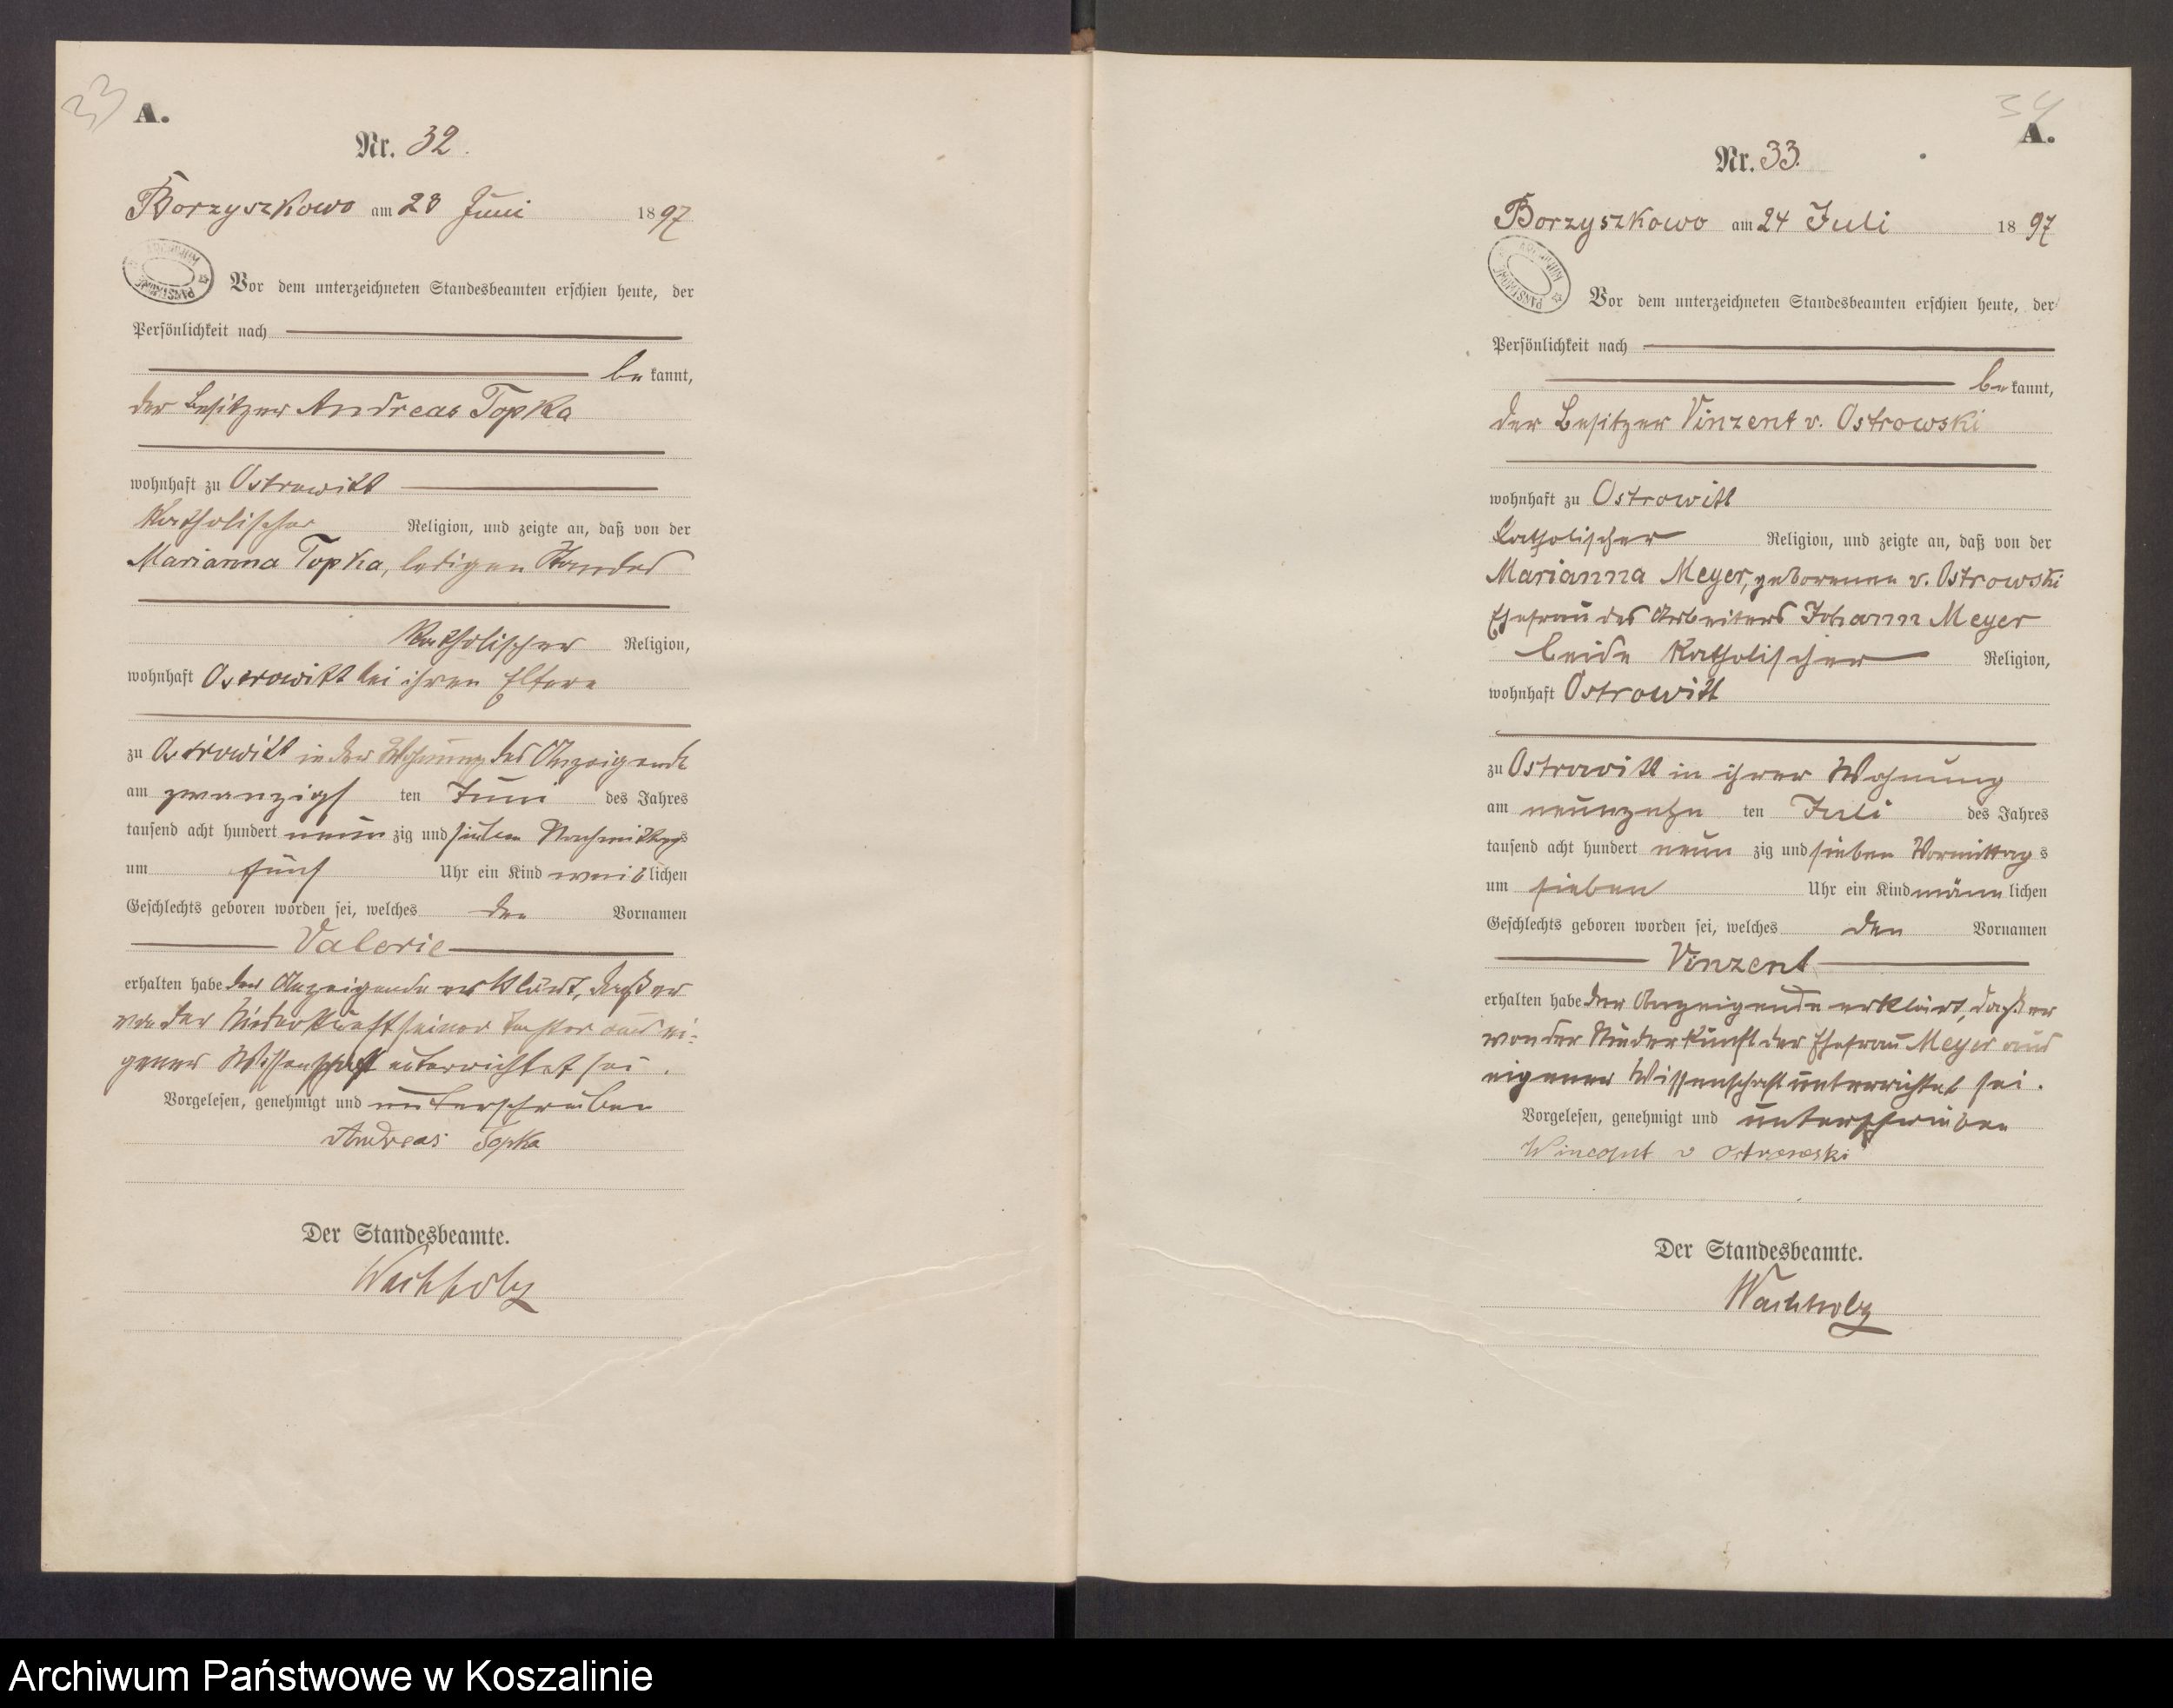 33
A.
Nr. 32.
Borzyszkowo am 23 Juni 1897
ARCHIWUM PAŃSTWOWE
Vor dem unterzeichneten Standesbeamten erschien heute, der
Persönlichkeit nach
be kannt,
der Besitzer Andreas Topka
wohnhaft zu Ostrowitt
katholischer Religion, und zeigte an, daß von der
Marianna Topka, ledigen Standes
katholischer Religion,
wohnhaft Ostrowitt bei ihren Eltern
zu Ostrowitt in der Wohnung des Anzeigende
am zwanzigs ten Juni des Jahres
tausend acht hundert neun zig und sieben Nachmittags
um fünf Uhr ein Kind weib lichen
Geschlechts geboren worden sei, welches den Vornamen
Valerie
erhalten habe der Anzeigende erklärt, daß er
von der Niederkunft seiner Tochter aus ei-
gener Wissenschaft unterrichtet sei.
Vorgelesen, genehmigt und unterschrieben
Andreas Topka
Der Standesbeamte.
Wachholz
34
A.
Nr. 33.
Borzyszkowo am 24 Juli 1897
ARCHIWUM PAŃSTWOWE
Vor dem unterzeichneten Standesbeamten erschien heute, der
Persönlichkeit nach
be kannt,
der Besitzer Vinzent v. Ostrowski
wohnhaft zu Ostrowitt
katholischer Religion, und zeigte an, daß von der
Marianna Meyer, geborenen v. Ostrowski
Ehefrau des Arbeiters Johann Meyer
beide katholischer Religion,
wohnhaft Ostrowitt
zu Ostrowitt in ihrer Wohnung
am neunzehn ten Juli des Jahres
tausend acht hundert neun zig und sieben Vormittag s
um sieben Uhr ein Kind männ lichen
Geschlechts geboren worden sei, welches den Vornamen
Vinzent
erhalten habe der Anzeigende erklärt, daß er
von der Niederkunft der Ehefrau Meyer aus
eigener Wissenschaft unterrichtet sei.
Vorgelesen, genehmigt und unterschrieben
Wincent v Ostrowski
Der Standesbeamte.
Wachholz
Archiwum Państwowe w Koszalinie